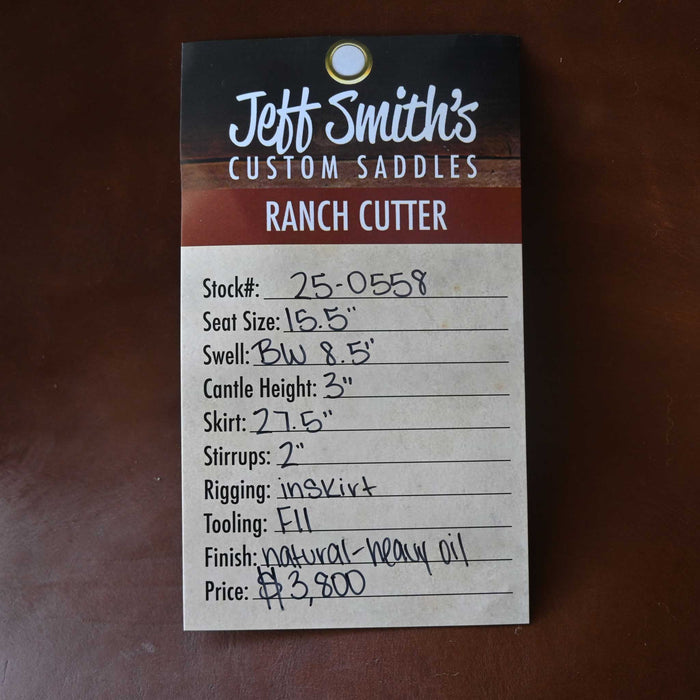 Jeff Smith's
CUSTOM SADDLES
RANCH CUTTER
Stock#: 25-0558
Seat Size: 15.5"
Swell: BW 8.5"
Cantle Height: 3"
Skirt: 27.5"
Stirrups: 2"
Rigging: inskirt
Tooling: F11
Finish: natural-heavy oil
Price: $3,800